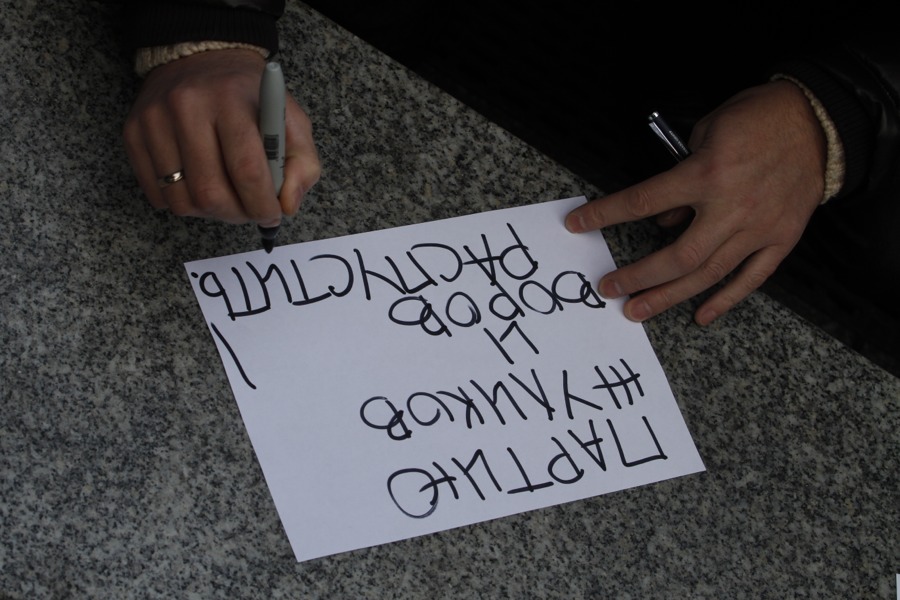 ПАРТИЮ
ЖУЛИКОВ
И
ВОРОВ
РАСПУСТИТЬ!